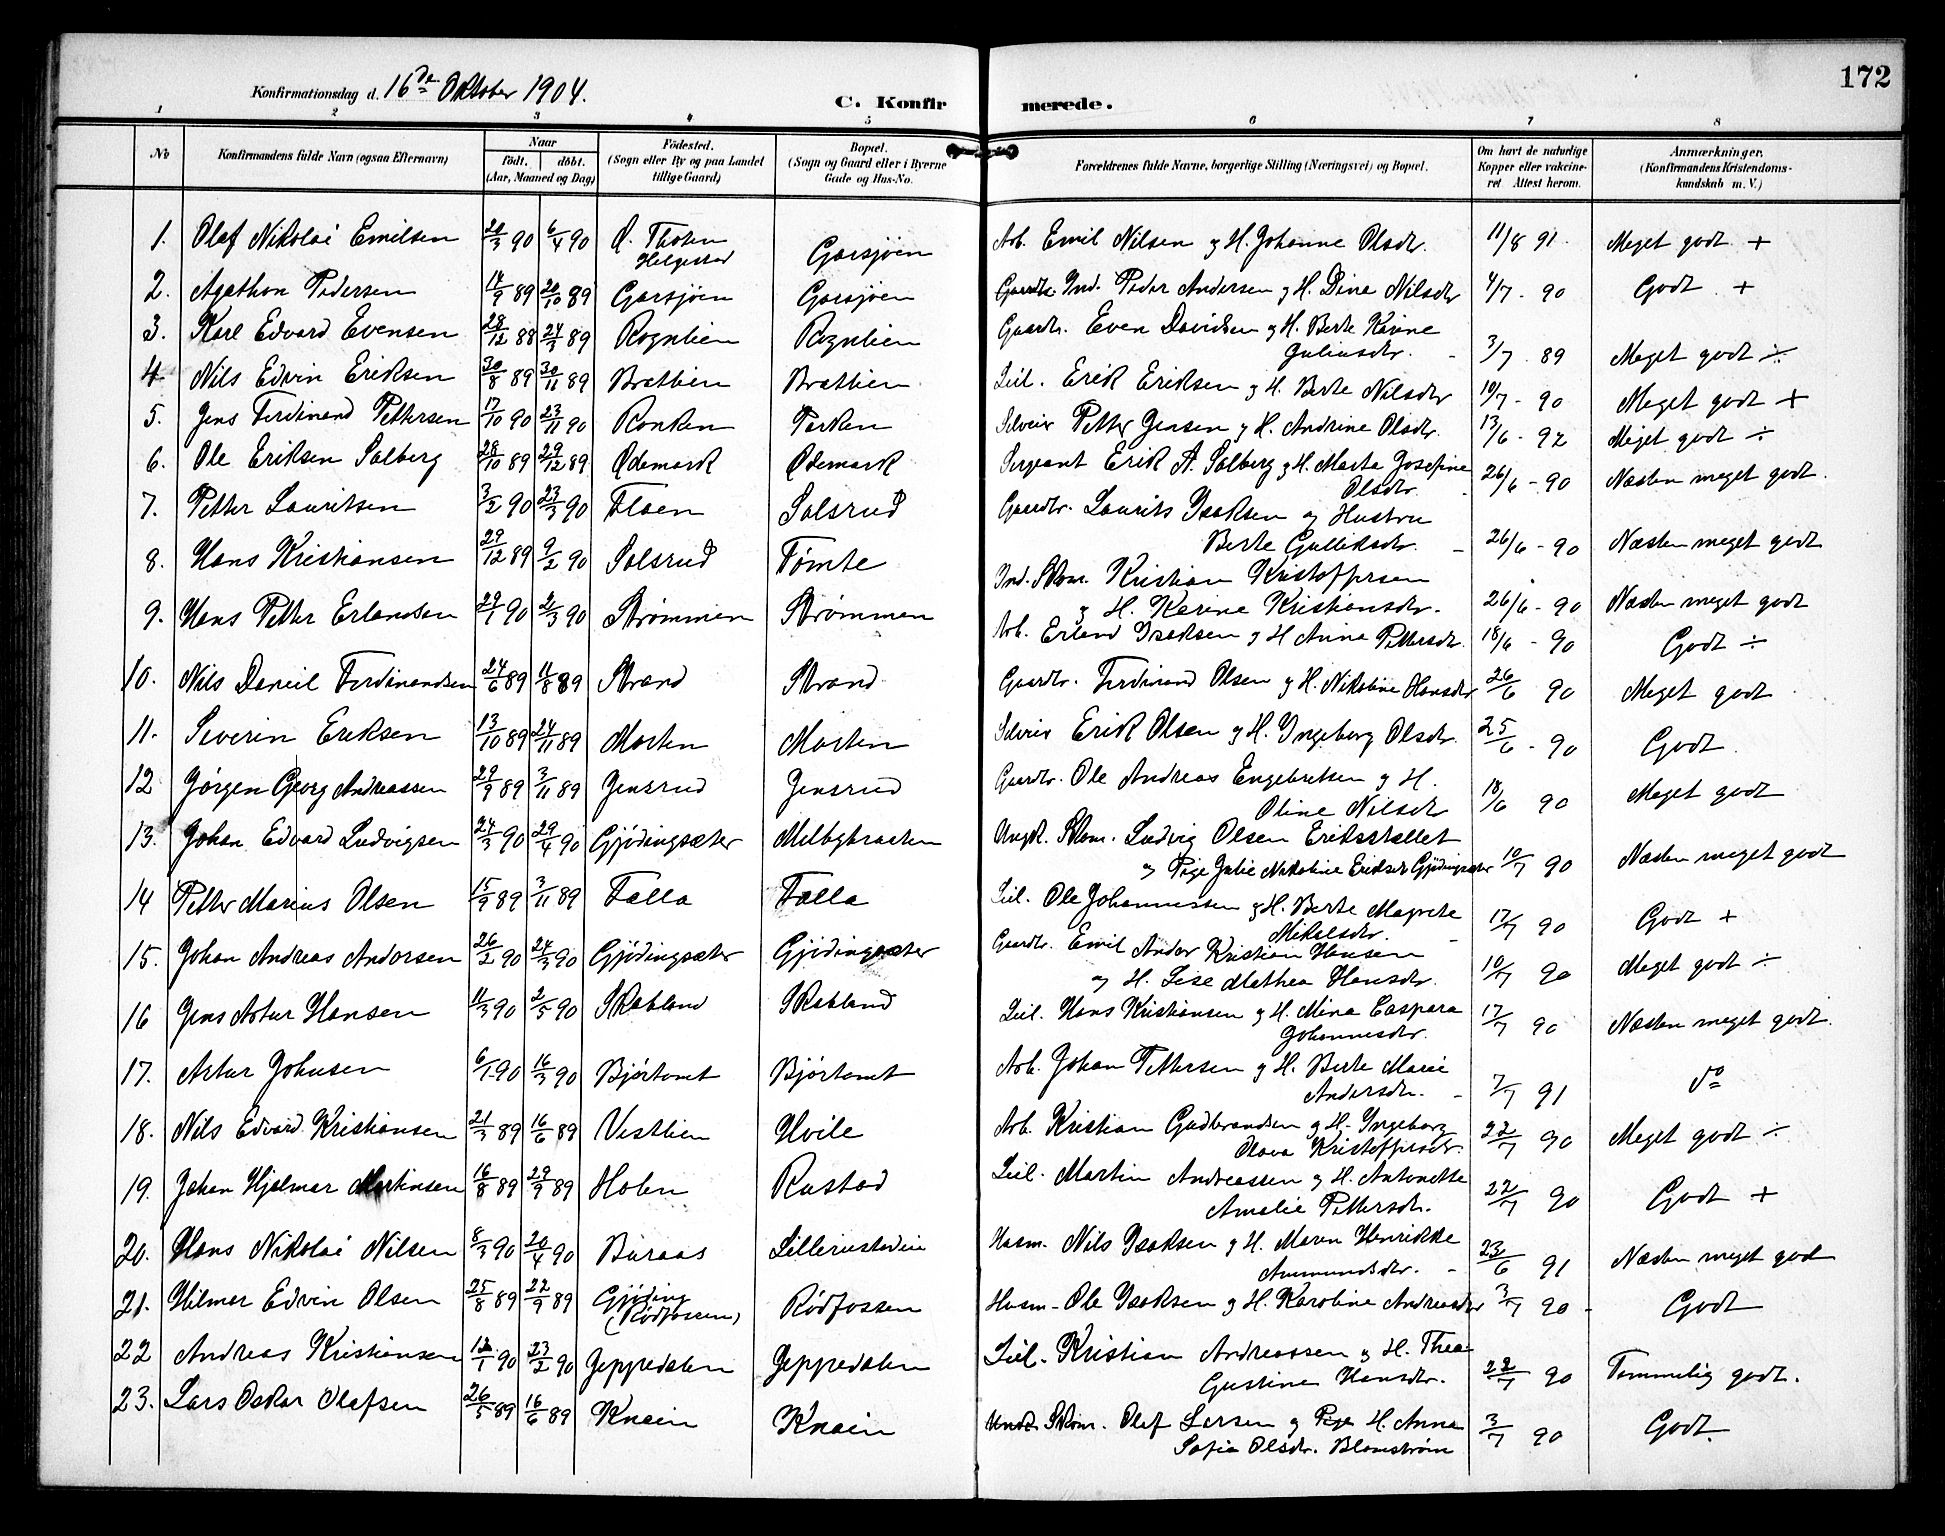 172
Konfirmationsdag d. 16de Oktober 1904.
C. Konfir merede.
1 2 3 4 5 6 7 8
No
Konfirmandens fulde Navn (ogsaa Efternavn)
Naar
født. døbt.
(Aar, Maaned og Dag)
Födested.
(Sogn eller By og paa Landet
tillige Gaard)
Bopæl.
(Sogn og Gaard eller i Byerne
Gade og Hus-No.
Forældrenes fulde Navne, borgerlige Stilling (Næringsvei) og Bopæl.
Om havt de naturlige
Kopper eller vakcine-
ret Attest herom.
Anmærkninger.
(Konfirmandens Kristendoms-
kundskab m. V.)
1. Olaf Nikolai Emilsen 20/3 90 6/4 90 Ø. Thoten Garsjøen Arb. Emil Nilsen og H. Johanne Olsdr. 11/8 91. Meget godt +
Helgestad
2. Agathon Pedersen 14/9 89 20/10 89 Garsjøen Garsjøen Ind. Peder Andersen og H. Dina Nilsdr 4/7 - 90 Godt +
3. Karl Edvard Evensen 28/12 88 24/3 89 Rognlien Rognlien Gaardbr. Even Davidsen og H. Berte Karine
Juliusdr. - 3/7 - 89 Meget godt ÷
4 Nils Edvin Eriksen 30/8 89 30/11 89 Bratlien Bratlien Leil. Erik Eriksen og H. Berte Nilsdr 10/7 - 90 Meget godt +
5. Jens Ferdinand Pettersen 17/10 90 23/11 90 Ronken Parken Selveier Petter Jensen og H. Andrine Olsdr. 13/6 - 92 Meget godt ÷
6. Ole Eriksen Solberg 28/10 89 29/12 89 Ødemark Ødemark Sergeant Erik A. Solberg og H. Marta Josefine
Olsdr. - 26/6 - 90 Næsten meget godt.
7. Petter Lauritsen 3/2 90 23/3 90 Flaen Solsrud Gaardbr. Laurits Isaksen og Hustru
Berte Gulliksdr. - 26/6 - 90 Næsten meget godt
8. Hans Kristiansen 29/12 89 9/2 90 Solsrud Tømte Ind. Skom. Kristian Kristoffersen
og H. Karine Kristiansdr. 26/6 - 90 Næsten meget godt
9. Hans Petter Erlandsen 29/1 90 2/3 90 Strømmen Strømmen Arb. Erland Isaksen og H Anna Pettersdr. 18/6 - 90 Godt ÷
10. Nils Daniel Ferdinandsen 24/6 89 11/8 89 Strand Strand Gaardbr. Ferdinand Olsen og H. Nikoline Hansdr 26/6 90 Meget godt
11. Severin Eriksen 13/10 89 24/11 89 Morten Morten Selveier Erik Olsen og H. Ingeborg Olsdr. 25/6 - 90 Godt.
12 Jørgen Georg Andreassen 29/9 89 3/11 89 Jensrud Jensrud Gaardbr. Ole Andreas Engebretsen og H.
Oline Nilsdr 18/6 90 Meget godt
13. Johan Edvard Ludvigsen 24/3 90 29/4 90 Gjødingsæter Melbybraaten Ungk. Skom. Ludvig Olsen Eriksstallet
og Pige Julie Nikoline Eriksdr Gjødingsæter 10/7 90 Næsten meget godt
14 Petter Marius Olsen 15/9 89 3/11 89 Falla Falla Leil. Ole Johannessen og H. Berte Magrete
Mikelsdr. - 17/7 90 Godt +
15. Johan Andreas Andorsen 26/2 90 24/3 90 Gjødingsæter Gjødingsæter Gaardbr. Emil Andor Kristian Hansen
og H. Lise Mathea Hansdr. 10/7 90 Meget godt ÷
16 Jens Artur Hansen 11/3 90 2/5 90 Skabland Skabland Leil. Hans Kristiansen og H. Mina Caspara
Johannesdr. 17/7 90 Næsten meget godt.
17. Artur Johnsen 6/1 90 16/3 90 Bjørtomt Bjørtomt Arb. Johan Pettersen og H. Berte Marie
Andersdr. - 7/7 91 do
18. Nils Edvard Kristiansen 21/3 89 16/6 89 Vestlien Hvile Arb. Kristian Gudbrandsen og H. Ingeborg
Olava Kristoffersdr. 22/7 90 Meget godt ÷
19. Johan Hjalmar Martinsen 16/8 89 29/9 89 Holen Rustad Leil. Martin Andreassen og H. Antonette
Amalie Pettersdr. 22/7 90 Godt +
20. Hans Nikolai Nilsen 8/3 90 20/4 90 Buraas Husm. Nils Isaksen og H. Maren Henrikke
Ammundsdr. - 23/6 91 Næsten meget godt
21. Hilmar Edvin Olsen 25/8 89 22/9 89 Gjøding Rødfossen Husm - Ole Isaksen og H. Karoline Andreasdr 3/7 90 - Godt
(Rødfossen)
22 Andreas Kristiansen 12/1 90 23/2 90 Jeppedalen Jeppedalen Leil. Kristian Andreassen og H. Thea
Gustine Hansdr. 22/7 90 Temmelig godt.
23. Lars Oskar Olafsen 26/5 89 16/6 89 Knain Knain Skom. Olaf Larsen og Pige H. Anna
Sofie Olsdr. Blomstrøm 3/7 90 Godt.